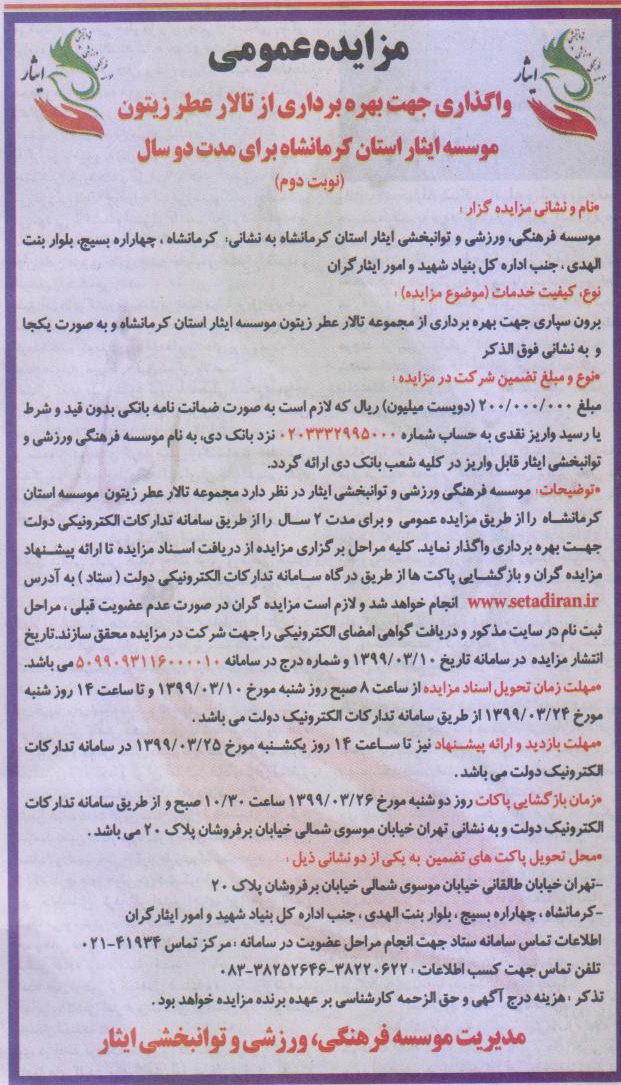 مزایده عمومی
ایثار
ایثار
واگذاری جهت بهره برداری از تالار عطر زیتون
موسسه ایثار استان کرمانشاه برای مدت دو سال
(نوبت دوم)
•نام و نشانی مزایده گزار :
موسسه فرهنگی، ورزشی و توانبخشی ایثار استان کرمانشاه به نشانی: کرمانشاه ، چهارراه بسیج، بلوار بنت
الهدی ، جنب اداره کل بنیاد شهید و امور ایثارگران
نوع، کیفیت خدمات (موضوع مزایده) :
برون سپاری جهت بهره برداری از مجموعه تالار عطر زیتون موسسه ایثار استان کرمانشاه و به صورت یکجا
و به نشانی فوق الذکر
•نوع و مبلغ تضمین شرکت در مزایده :
مبلغ ۲۰۰/۰۰۰/۰۰۰ (دویست میلیون) ریال که لازم است به صورت ضمانت نامه بانکی بدون قید و شرط
یا رسید واریز نقدی به حساب شماره ۰۲۰۳۳۳۲۹۹۵۰۰۰ نزد بانک دی، به نام موسسه فرهنگی ورزشی و
توانبخشی ایثار قابل واریز در کلیه شعب بانک دی ارائه گردد.
•توضیحات: موسسه فرهنگی ورزشی و توانبخشی ایثار در نظر دارد مجموعه تالار عطر زیتون موسسه استان
کرمانشاه را از طریق مزایده عمومی و برای مدت ۲ سال را از طریق سامانه تدارکات الکترونیکی دولت
جهت بهره برداری واگذار نماید. کلیه مراحل برگزاری مزایده از دریافت اسناد مزایده تا ارائه پیشنهاد
مزایده گران و بازگشایی پاکت ها از طریق درگاه سامانه تدارکات الکترونیکی دولت ( ستاد ) به آدرس
www.setadiran.ir انجام خواهد شد و لازم است مزایده گران در صورت عدم عضویت قبلی ، مراحل
ثبت نام در سایت مذکور و دریافت گواهی امضای الکترونیکی را جهت شرکت در مزایده محقق سازند.تاریخ
انتشار مزایده در سامانه تاریخ ۱۳۹۹/۰۳/۱۰ و شماره درج در سامانه ۵۰۹۹۰۹۳۱۱۶۰۰۰۰۱۰ می باشد.
•مهلت زمان تحویل اسناد مزایده از ساعت ۸ صبح روز شنبه مورخ ۱۳۹۹/۰۳/۱۰ و تا ساعت ۱۴ روز شنبه
مورخ ۱۳۹۹/۰۳/۲۴ از طریق سامانه تدارکات الکترونیک دولت می باشد .
•مهلت بازدید و ارائه پیشنهاد نیز تا ساعت ۱۴ روز یکشنبه مورخ ۱۳۹۹/۰۳/۲۵ در سامانه تدارکات
الکترونیک دولت می باشد .
•زمان بازگشایی پاکات روز دو شنبه مورخ ۱۳۹۹/۰۳/۲۶ ساعت ۱۰/۳۰ صبح و از طریق سامانه تدارکات
الکترونیک دولت و به نشانی تهران خیابان موسوی شمالی خیابان برفروشان پلاک ۲۰ می باشد .
•محل تحویل پاکت های تضمین به یکی از دو نشانی ذیل :
-تهران خیابان طالقانی خیابان موسوی شمالی خیابان برفروشان پلاک ۲۰
-کرمانشاه ، چهارراه بسیج ، بلوار بنت الهدی ، جنب اداره کل بنیاد شهید و امور ایثارگران
اطلاعات تماس سامانه ستاد جهت انجام مراحل عضویت در سامانه : مرکز تماس ۴۱۹۳۴-۰۲۱
تلفن تماس جهت کسب اطلاعات : ۳۸۲۲۰۶۲۲-۳۸۲۵۲۶۴۶-۰۸۳
تذکر : هزینه درج آگهی و حق الزحمه کارشناسی بر عهده برنده مزایده خواهد بود .
مدیریت موسسه فرهنگی، ورزشی و توانبخشی ایثار